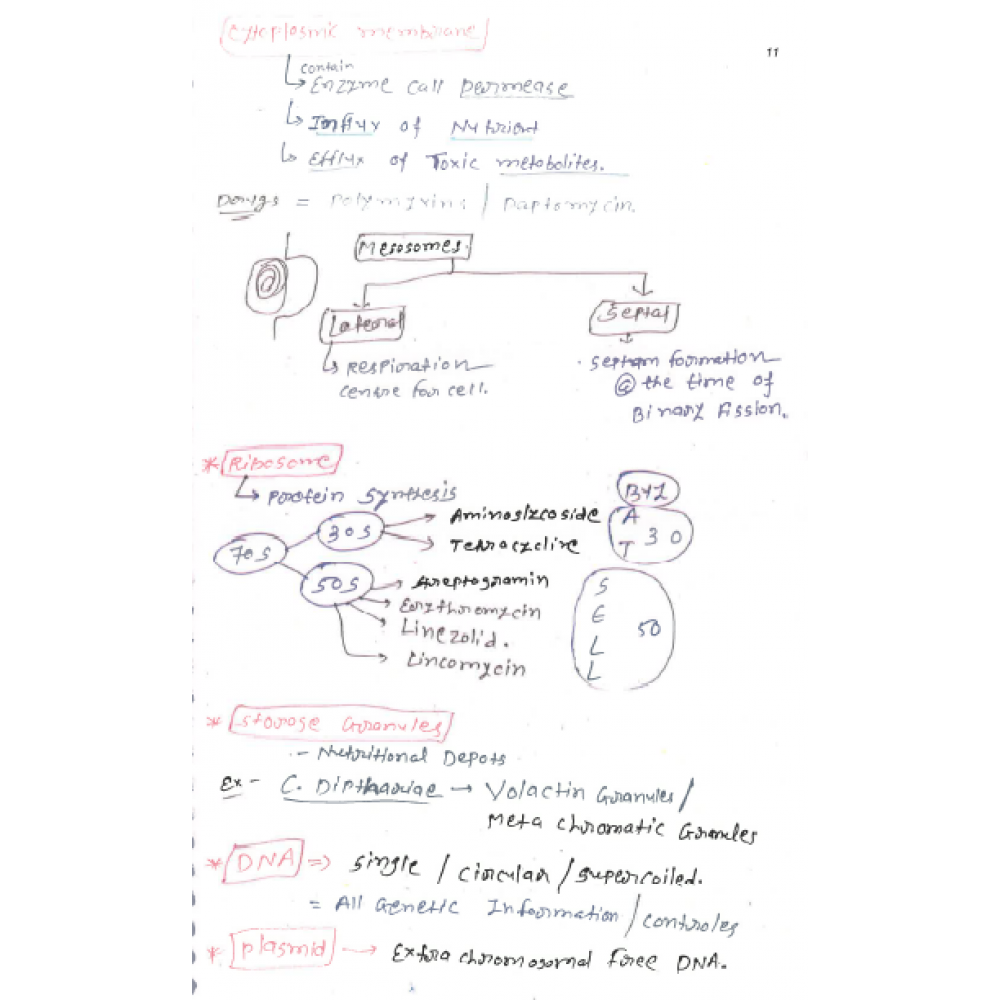 11
Cytoplasmic membrane
contain
Enzyme call permease
Influx of Nutrient
Efflux of Toxic metabolites.
Drugs = Polymyxins / Daptomycin.
Mesosomes.
Lateral
Septal
Respiration
centre for cell.
Septum formation
@ the time of
Binary Fission.
* Ribosome
Protein Synthesis
70S
30S
Aminoglycoside
Tetracycline
50S
Streptogramin
Erythromycin
Linezolid.
Lincomycin
BYL
A
T 30
S
E
L 50
L
* Storage Granules
- Nutritional Depots
Ex - C. Diptheriae → Volactin Granules /
Meta chromatic Granules
* DNA => Single / circular / supercoiled.
= All Genetic Information / controles
* Plasmid → Extra chromosomal free DNA.